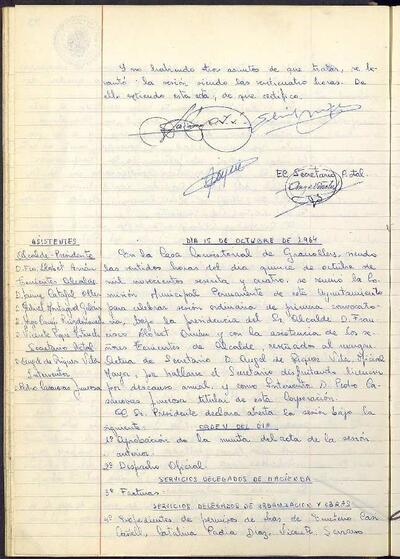 Y no habiendo otros asuntos de que tratar, se le-
vantó la sesión siendo las veinticuatro horas. De
ello extiendo esta acta, de que certifico.
El Secretario Actal.
ASISTENTES
Alcalde-Presidente
D. Fco. Llobet
Tenientes Alcalde
D. Jaime
Secretario Actal
Angel de Riquer Vila
Interventor
Pedro Casanovas Juncosa
DIA 15 DE OCTUBRE DE 1964
En la Casa Consistorial de Granollers, siendo
las veintidos horas del dia quince de octubre de
mil novecientos sesenta y cuatro, se reune la Co-
misión Municipal Permanente de este Ayuntamiento
para celebrar sesión ordinaria de primera convocato-
ria, bajo la presidencia del Sr. Alcalde D. Fran-
cisco Llobet y con la asistencia de los se-
ñores Tenientes de Alcalde, reseñados al margen.
Actua de Secretario D. Angel de Riquer Vila, Oficial
Mayor, por hallarse el Secretario disfrutando licencia
por descanso anual, y como Interventor D. Pedro Ca-
sanovas Juncosa titular de esta Corporación.
El Sr. Presidente declara abierta la sesión bajo la
siguiente: ORDEN DEL DIA
1º Aprobación de la minuta del acta de la sesión
anterior.
2º Despacho Oficial.
SERVICIOS DELEGADOS DE HACIENDA
3º Facturas.
SERVICIOS DELEGADOS DE URBANIZACION Y OBRAS
4º Expedientes de permisos de obras de Emiterio Can
Catalina Padia Diaz, Vicente Serrano